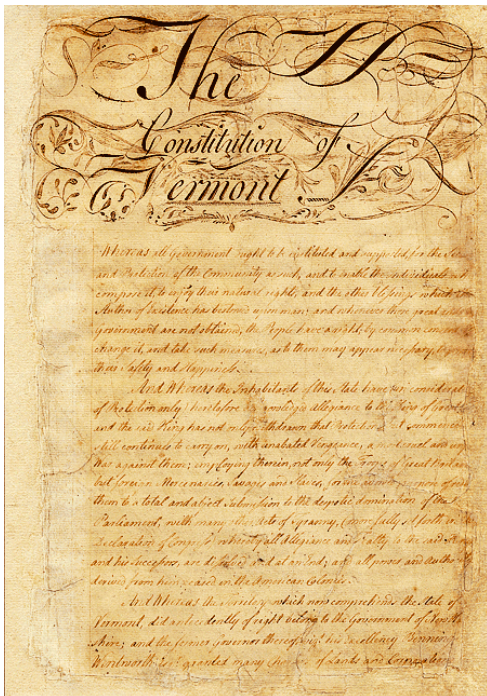 The
Constitution of
Vermont
Whereas all Government ought to be instituted and supported, for the
and Protection of the Community as such, and to enable the individuals
compose it, to enjoy their natural rights, and the other blessings which
Author of Existence has bestowed upon man; and whenever those great
government are not obtained, the People have a right, by common consent
change it, and take such measures, as to them may appear necessary to
their Safety and Happiness.
And Whereas the Inhabitants of this State have
of Protection only heretofore acknowledged allegiance to the King of
and the said King has not only withdrawn that Protection but commenced
still continues to carry on, with unabated Vengeance, a most cruel and
War against them; employing therein, not only the Troops of Great
but foreign Mercenaries, Savages and Slaves, for the purpose of
them to a total and abject Submission to the despotic domination of the
Parliament, with many other Acts of Tyranny, (more fully set forth in the
Declaration of Congress) whereby all Allegiance and Fealty to the said
and his Successors, are dissolved and at an End; and all power and
derived from him ceased in the American Colonies.
And Whereas the Territory which now comprehends the State of
Vermont, did antecedently of right belong to the Government of
shire; and the former Governor thereof, his Excellency Benning
Wentworth granted many Charters of Lands and